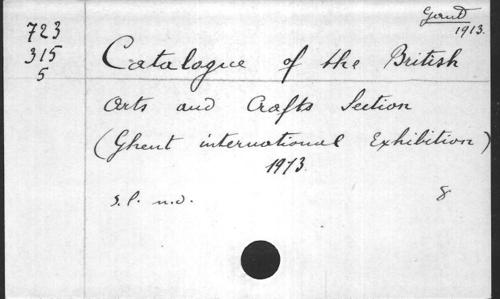 Gand
1913.
723
315
5
Catalogue of the British
Arts and Crafts Section
(Ghent international Exhibition)
1913
S.l. n.d. 8